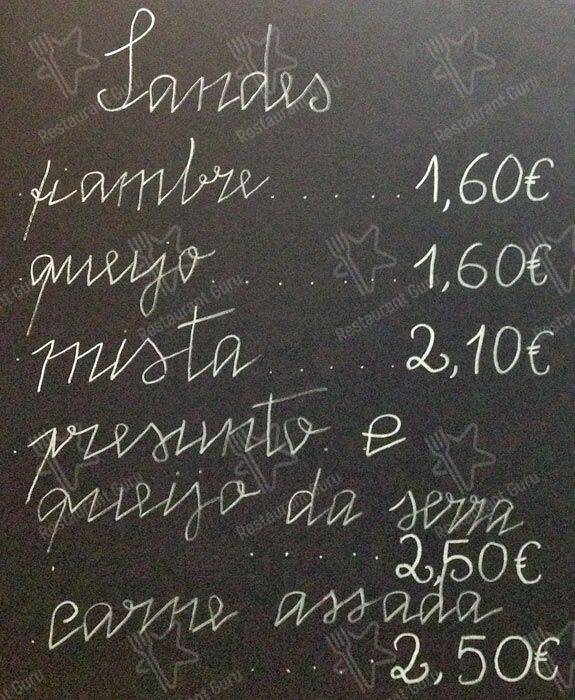 Sandes
. fiambre . . . . . . 1,60€
. queijo . . . . . 1,60€
. mista . . . . . . 2,10€
. presunto e
queijo da serra
. . . . . 2,50€
. carne assada
. . . . . 2,50€
Restaurant Guru